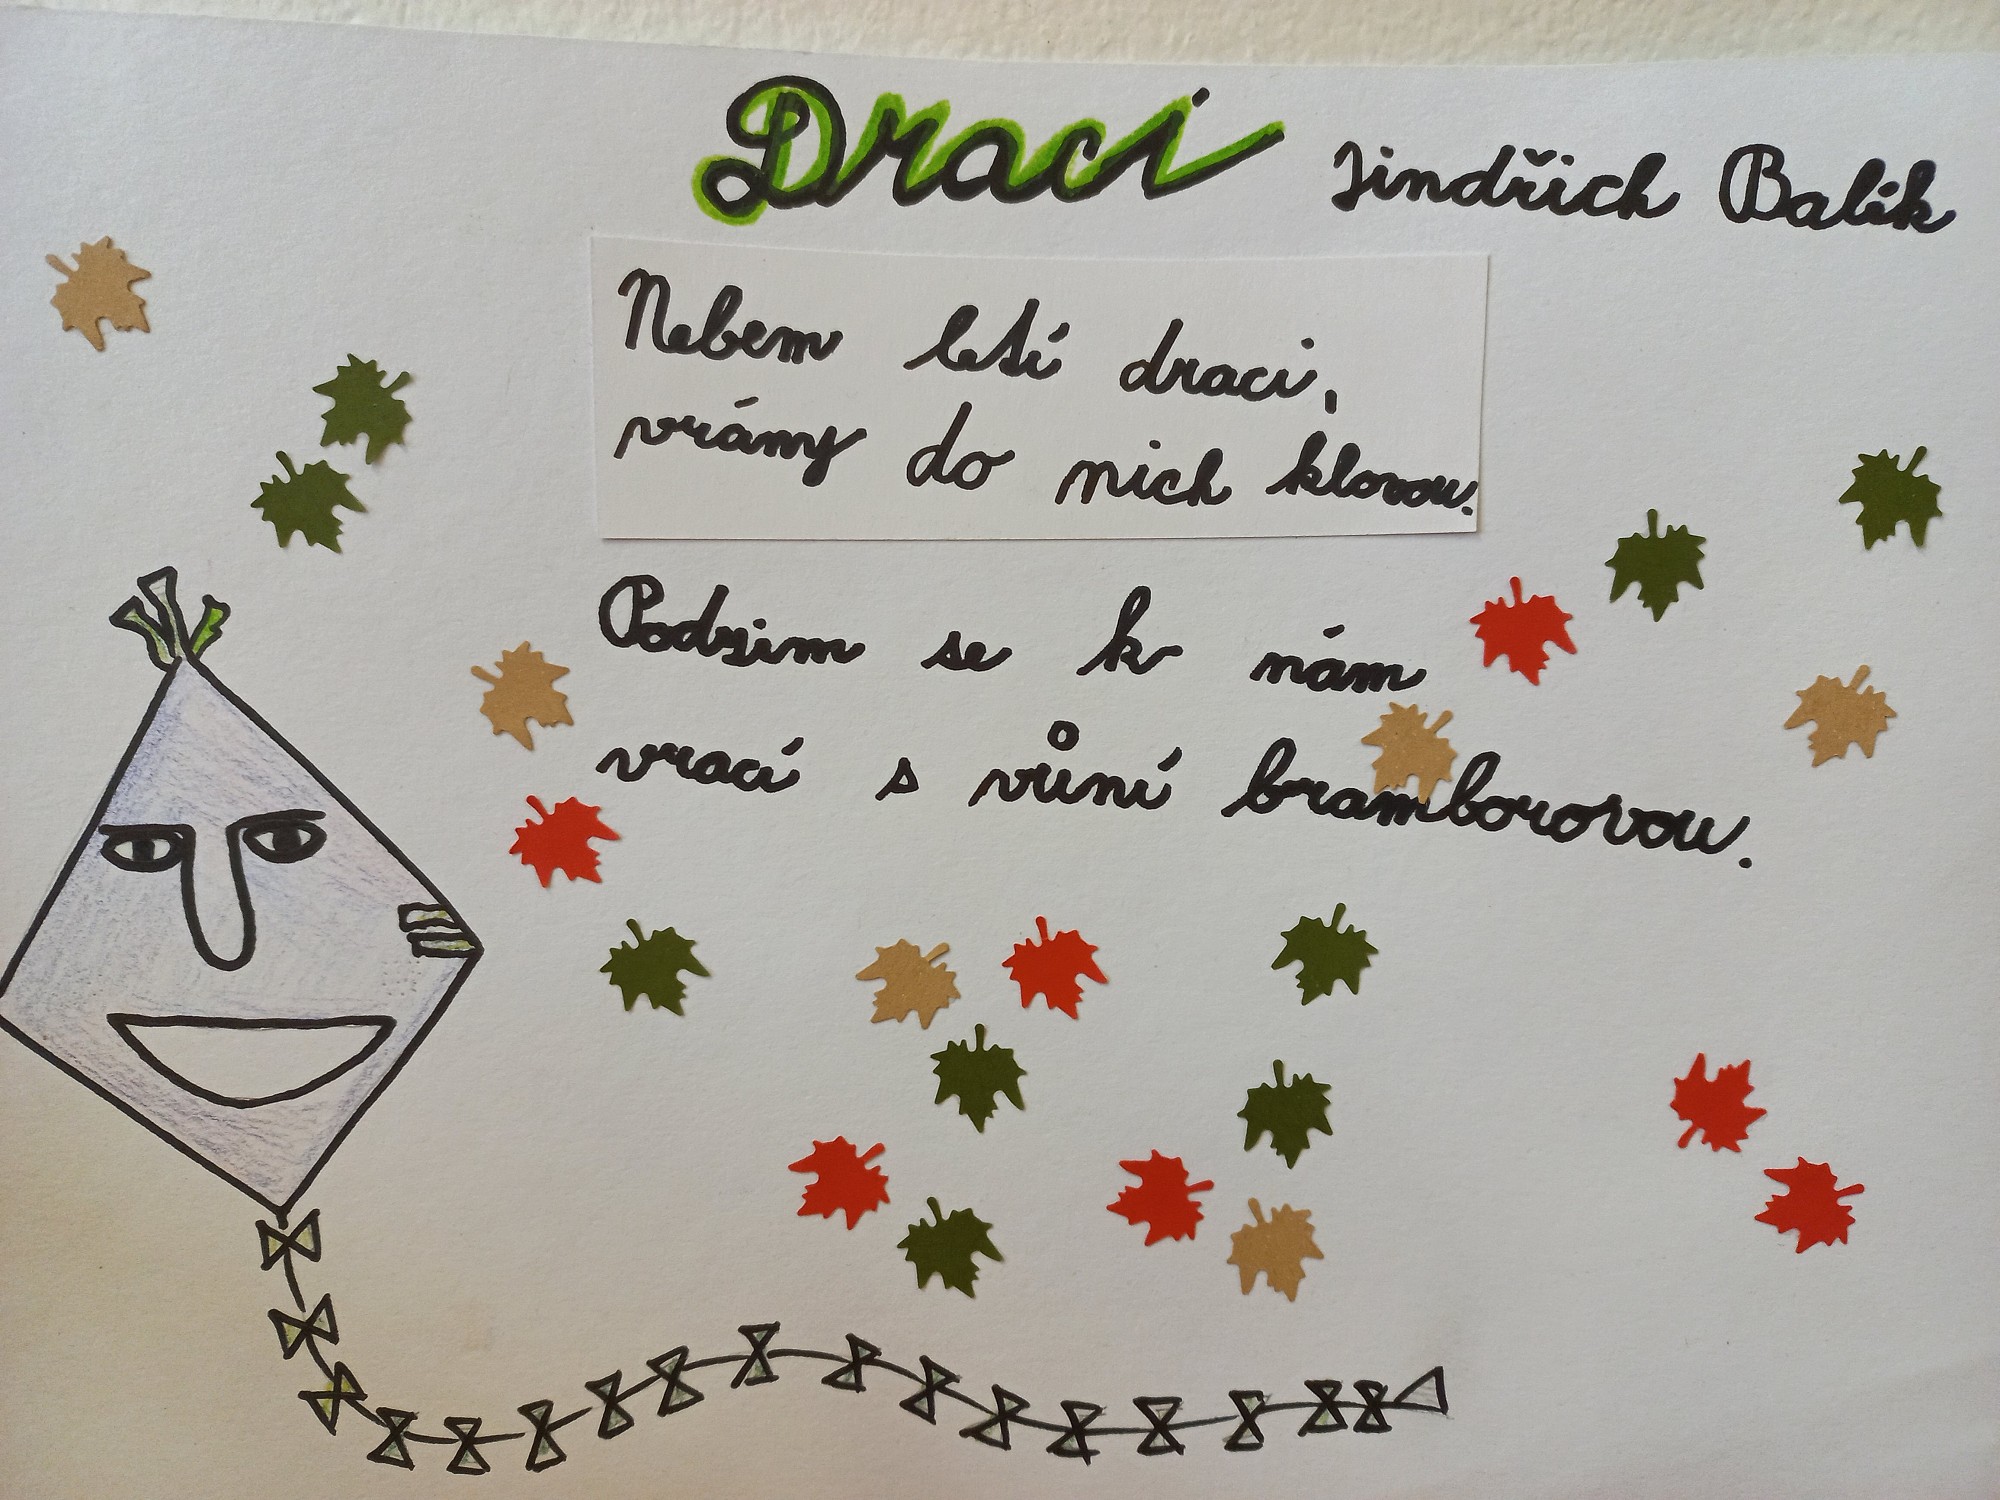 Draci Jindřich Balík
Nebem letí draci,
vrány do nich klovou.
Podzim se k nám
vrací s vůní bramborovou.